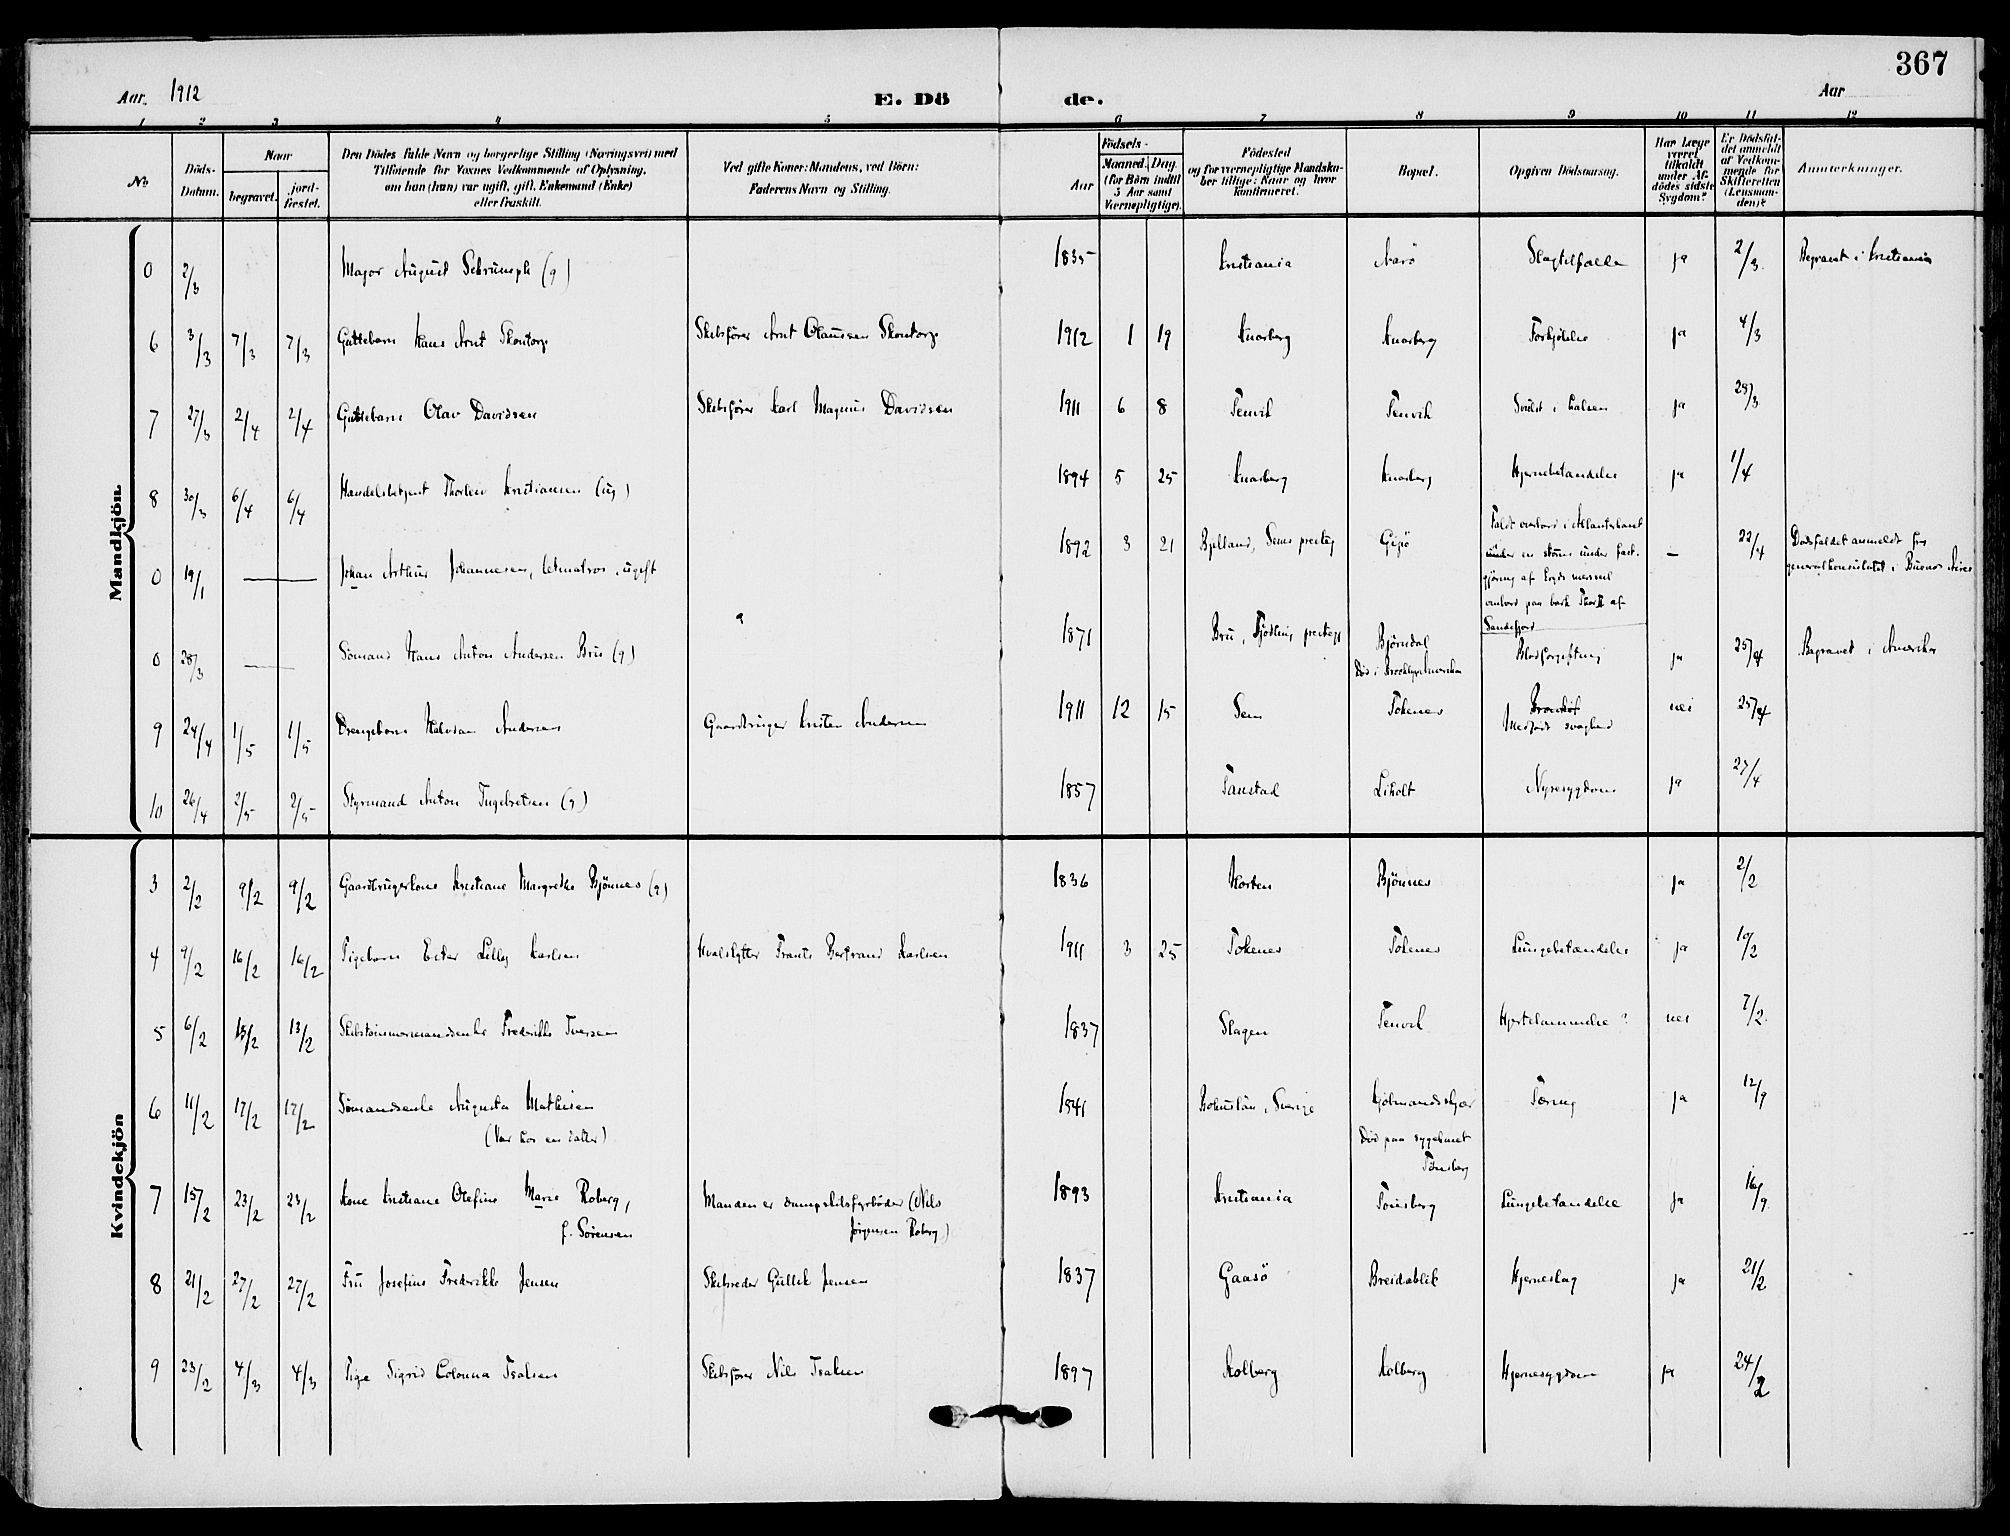 367
Aar. 1912 E. Dö de. Aar
1 2 3 4 5 6 7 8 9 10 11 12
No.
Döds-Datum.
Naar
begravet. jord-fæstet.
Den Dödes fulde Navn og borgerlige Stilling (Næringsvei) med
Tilföiende for Voxnes Vedkommende af Oplysning,
om han (hun) var ugift, gift, Enkemand (Enke)
eller fraskilt.
Ved gifte Koner: Mandens, ved Börn:
Faderens Navn og Stilling.
Födsels-
Aar Maaned. Dag.
(for Börn indtil
5 Aar samt
Værnepligtige).
Födested
og for værnepligtige Mandska-
ber tillige: Naar og hvor
konfirmeret.
Bopæl.
Opgiven Dödsaarsag.
Har Læge
været
tilkaldt
under Af-
dödes sidste
Sygdom?
Er Dödsfal-
det anmeldt
af Vedkom-
mende for
Skifteretten
(Lensman-
den)?
Anmærkninger.
Mandkjön
0 2/3 Major August Schrumpf (g) 1835 Kristiania Narö Slagtilfælde ja 2/3 Begravet i Kristiania
6 3/3 7/3 7/3 Guttebarn Hans Arnt Skontorp Skibsförer Arnt Olaussen Skontorp 1912 1 19 Knarberg Knarberg Forkjölelse ja 4/3
7 27/3 2/4 2/4 Guttebarn Olav Davidsen Skibsförer Karl Magnus Davidsen 1911 6 8 Tenvik Tenvik Svulst i halsen ja 28/3
8 30/3 6/4 6/4 Handelsbetjent Thorleiv Kristiansen (ug) 1894 5 25 Knarberg Knarberg Hjernebetændelse ja 1/4
0 19/1 — Johan Arthur Johannesen, letmatros, ugift 1892 3 21 Bjelland, Sems prestegj Gipö Faldt overbord i Atlanterhavet
under en storm under fast-
gjöring af
ombord paa bark Thor II af
Sandefjord — 22/4 Dødsfaldet anmeldt fra
generalkonsulatet i Buenos Aires
0 28/3 — Sömand Hans Anton Andersen Bru (g) 1871 Bru, Fjödling prestegj Bjørndal
Død i Brooklyn Amerika Blodforgiftning ja 25/4 Begravet i Amerika
9 24/4 1/5 1/5 Drengebarn Halvdan Andersen Gaardbruger Kristen Andersen 1911 12 15 Sem Tokenes Medfødt svaghed nei 25/4
10 26/4 2/5 2/5 Styrmand Anton Ingebretsen (g) 1857 Tanstad Liholt Nyresygdom ja 27/4
Kvindekjön
3 2/2 9/2 9/2 Gaardbrugerkone Kristiane Margrethe Bjönnes (g) 1836 Horten Bjönnes ja 2/2
4 9/2 16/2 16/2 Pigebarn Ester Lilly Karlsen Hvalskytter Frants Bertrand Karlsen 1911 3 25 Tokenes Tokenes Lungebetændelse ja 10/2
5 6/2 13/2 13/2 Skibstømmermandsenke Fredrikke Iversen 1837 Slagen Tenvik Hjertelammelse? nei 7/2
6 11/2 17/2 17/2 Sömandsenke Augusta Mathisen
(Var hos en datter) 1841 Bohuslän, Sverige Kjölmandskjær
Död paa sygehuset
Tönsberg Tæring ja 12/9
7 15/2 23/2 23/2 Kone Kristiane Olefine Marie Roberg,
f. Sörensen Manden er dampskibsfyrböder (Nils
Jörgensen Roberg) 1893 Kristiania Tönsberg Lungebetændelse ja 16/9
8 21/2 27/2 27/2 Fru Josefine Fredrikke Jensen Skibsreder Gullik Jensen 1837 Gaasö Breidablik Hjerneslag ja 21/2
9 23/2 4/3 4/3 Pige Sigrid Colonna Isaksen Skibsförer Nils Isaksen 1897 Kolberg Kolberg Hjernesygdom ja 24/2